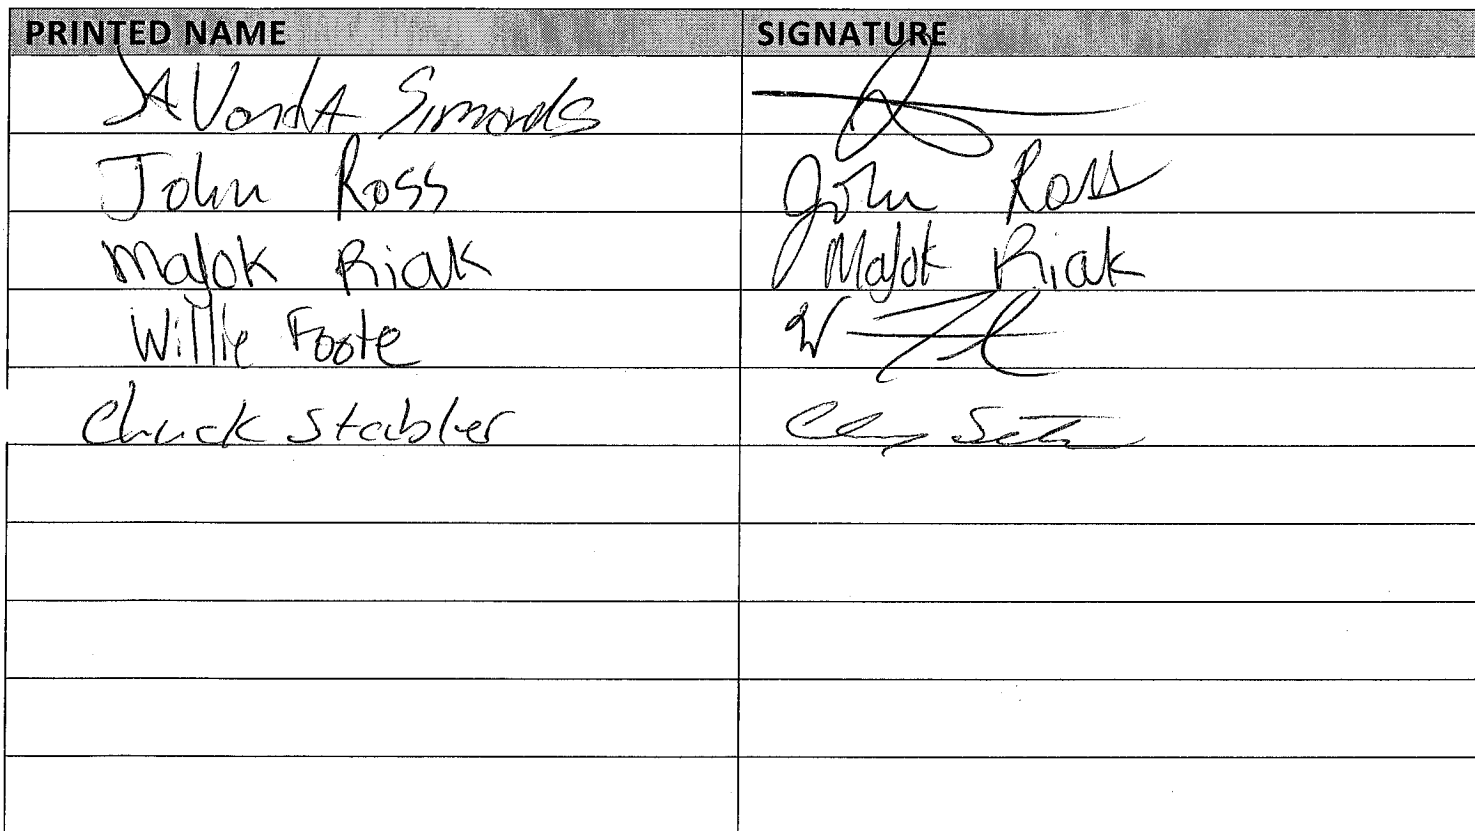 PRINTED NAME SIGNATURE
Simonds
John Ross John Ross
Majok Riak Majok Riak
Willie Foote W
Chuck Stabler